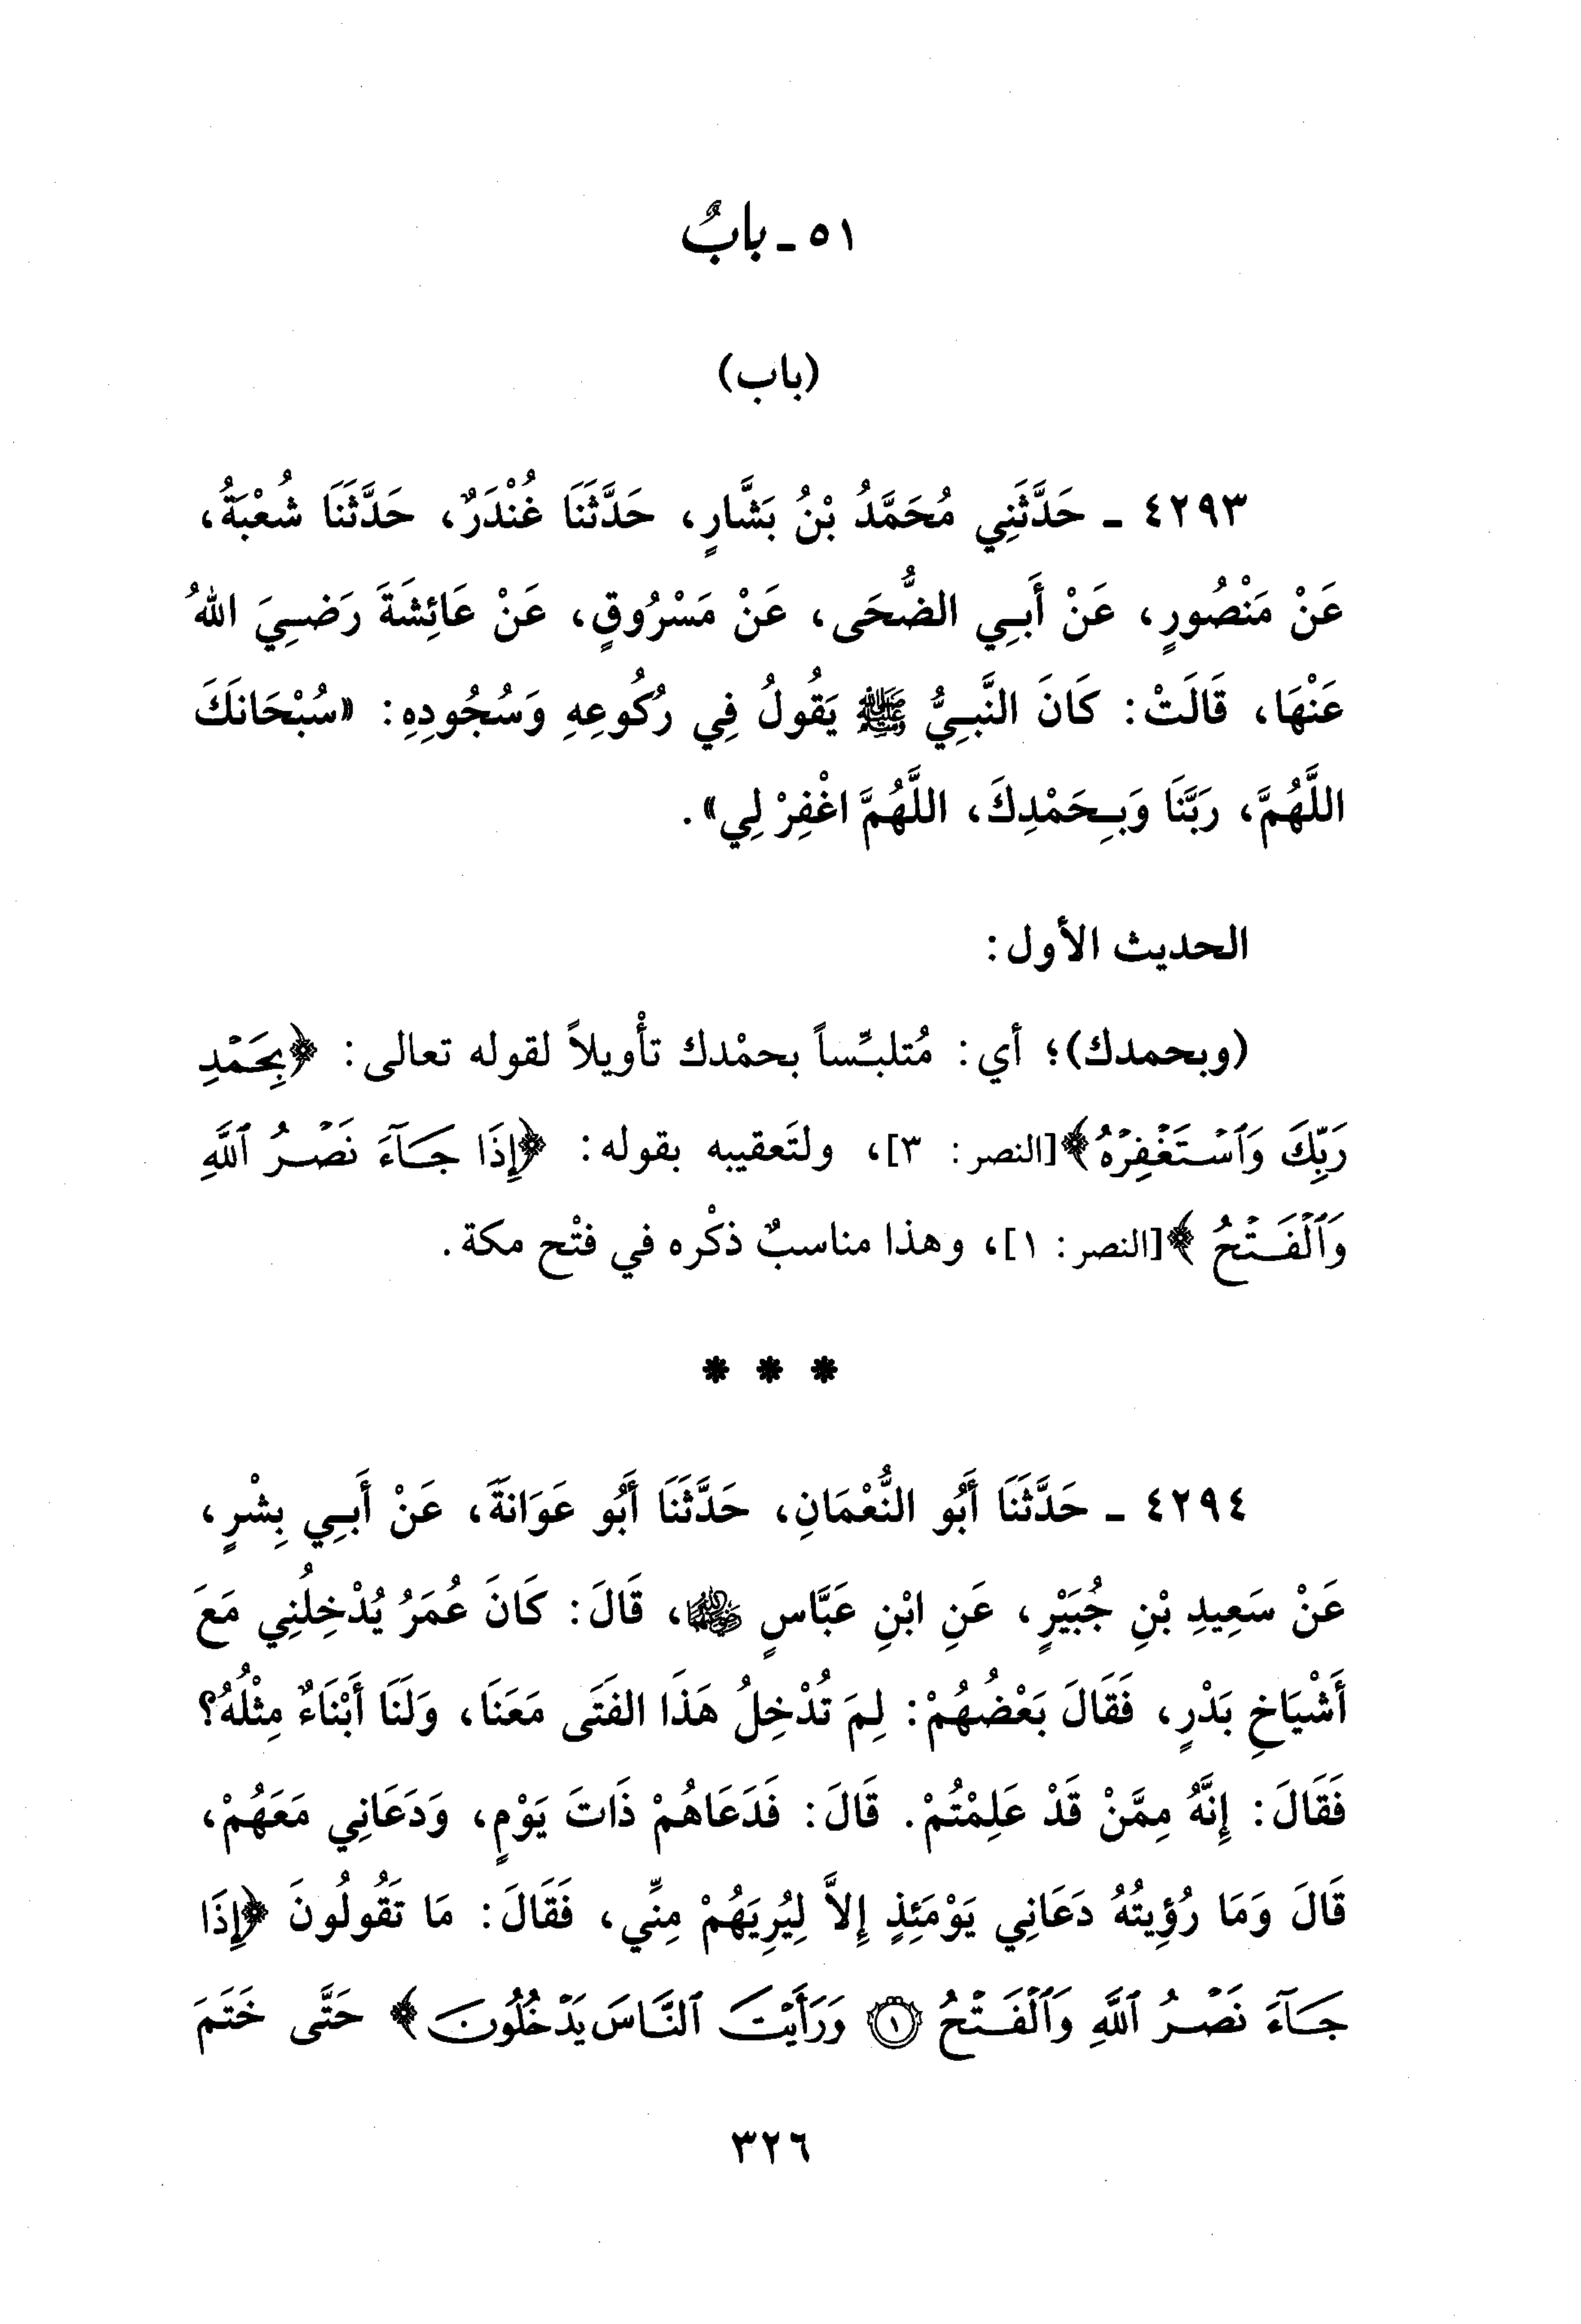 ٥١ - بابٌ
(باب)
٤٢٩٣ - حَدَّثَنِي مُحَمَّدُ بْنُ بَشَّارٍ، حَدَّثَنَا غُنْدَرٌ، حَدَّثَنَا شُعْبَةُ،
عَنْ مَنْصُورٍ، عَنْ أَبِي الضُّحَى، عَنْ مَسْرُوقٍ، عَنْ عَائِشَةَ رَضِيَ اللهُ
عَنْهَا، قَالَتْ: كَانَ النَّبِيُّ ﷺ يَقُولُ فِي رُكُوعِهِ وَسُجُودِهِ: «سُبْحَانَكَ
اللَّهُمَّ، رَبَّنَا وَبِحَمْدِكَ، اللَّهُمَّ اغْفِرْ لِي».
الحديث الأول:
(وبحمدك)؛ أي: مُتلبِّساً بحمْدك تأْويلاً لقوله تعالى: ﴿بِحَمْدِ
رَبِّكَ وَٱسْتَغْفِرْهُ﴾[النصر: ٣]، ولتَعقيبه بقوله: ﴿إِذَا جَآءَ نَصْرُ ٱللَّهِ
وَٱلْفَتْحُ﴾[النصر: ١]، وهذا مناسبٌ ذكْره في فتْح مكة.
* * *
٤٢٩٤ - حَدَّثَنَا أَبُو النُّعْمَانِ، حَدَّثَنَا أَبُو عَوَانَةَ، عَنْ أَبِي بِشْرٍ،
عَنْ سَعِيدِ بْنِ جُبَيْرٍ، عَنِ ابْنِ عَبَّاسٍ ﵄، قَالَ: كَانَ عُمَرُ يُدْخِلُنِي مَعَ
أَشْيَاخِ بَدْرٍ، فَقَالَ بَعْضُهُمْ: لِمَ تُدْخِلُ هَذَا الفَتَى مَعَنَا، وَلَنَا أَبْنَاءٌ مِثْلُهُ؟
فَقَالَ: إِنَّهُ مِمَّنْ قَدْ عَلِمْتُمْ. قَالَ: فَدَعَاهُمْ ذَاتَ يَوْمٍ، وَدَعَانِي مَعَهُمْ،
قَالَ وَمَا رُؤِيتُهُ دَعَانِي يَوْمَئِذٍ إِلاَّ لِيُرِيَهُمْ مِنِّي، فَقَالَ: مَا تَقُولُونَ ﴿إِذَا
جَآءَ نَصْرُ ٱللَّهِ وَٱلْفَتْحُ ١ وَرَأَيْتَ ٱلنَّاسَ يَدْخُلُونَ﴾ حَتَّى خَتَمَ
٣٢٦